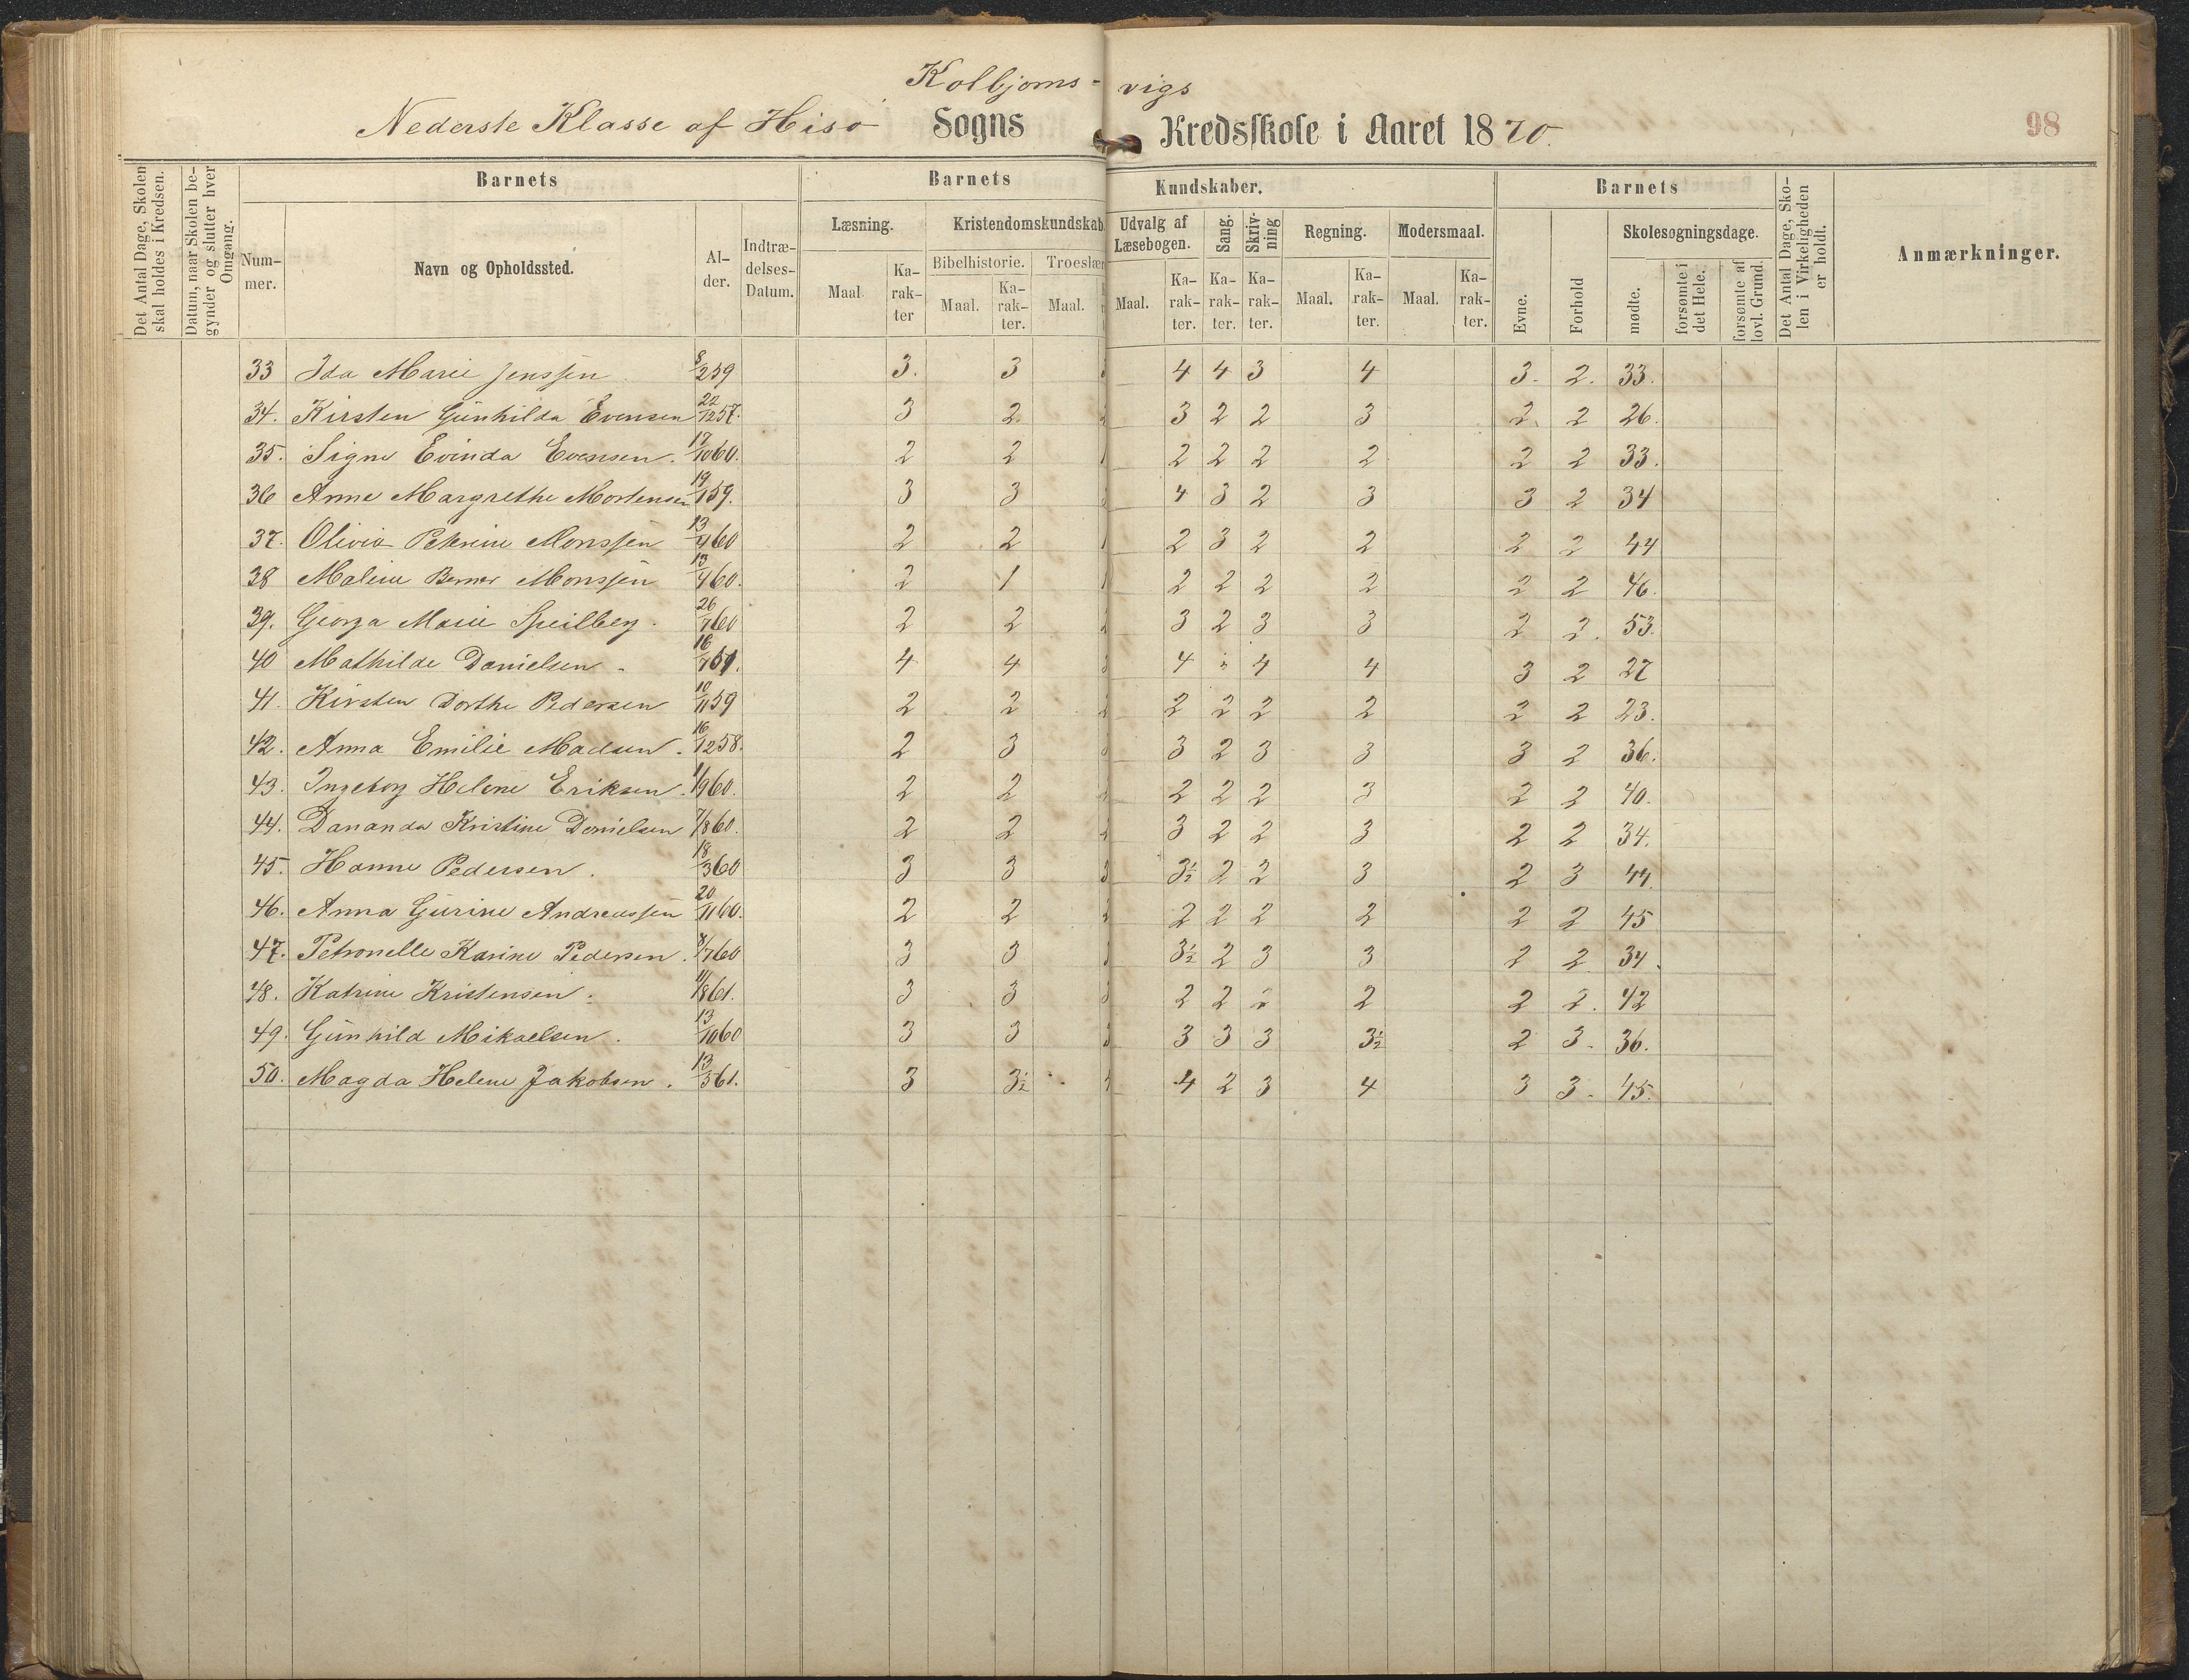 Kolbjorns- vigs
Nederste Klasse af Hisø Sogns Kredsskole i Aaret 1870.
98
Det Antal Dage, Skolen skal holdes i Kredsen.
Datum, naar Skolen begynder og slutter hver Omgang.
Barnets Barnets Kundskaber. Barnets
Nummer. Navn og Opholdssted. Alder. Indtrædelses-Datum.
Læsning. Kristendomskundskab Udvalg af Læsebogen. Sang. Skrivning Regning. Modersmaal.
Bibelhistorie. Troeslær
Maal. Karakter Maal. Karakter. Maal. Maal. Karakter. Karakter. Karakter. Maal. Karakter. Maal. Karakter.
Evne. Forhold Skolesøgningsdage. mødte. forsømte i det Hele. forsømte af lovl. Grund.
Det Antal Dage, Skolen i Virkeligheden er holdt.
Anmærkninger.
33 Ida Marie Jenssen 8/2 59 3. 3 4 4 3 4 3. 2. 33.
34. Kirsten Gunhilda Evensen 22/12 57. 3 2. 3 2 2 3 2. 2 26.
35. Signe Evinda Evensen. 17/10 60. 2 2 2 2 2 2 2 2 33.
36 Anne Margrethe Mortensen 19/1 59. 3 3 4 3 2 3 3 2 34
37. Olivia Petrine Monssen 13/4 60 2 2 2 3 2 2 2 2 44
38 Maline Berner Monssen 13/4 60. 2 1 2 2 2 2 2 2 46.
39. Georga Marie Speilberg. 26/7 60 2 2 3 2 3 3 2 2. 53.
40 Mathilde Danielsen. 16/7 4 4 4 4 4 3 2 27
41. Kirsten Dorthe Pedersen 10/11 59 2 2 2 2 2 2 2 2 23.
42. Anna Emilie Madsen. 16/12 58. 2 3 3 2 3 3 3 2 36.
43. Ingeborg Helene Eriksen. 1/9 60. 2 2 2 2 2 3 2 2 40.
44. Dananda Kristine Danielsen 7/8 60. 2 2 3 2 2 3 2 2 34.
45. Hanne Pedersen. 18/3 60 3 3 3½ 2 2 3 2 3 44.
46. Anna Gurine Andreassen 20/11 60. 2 2 2 2 2 2 2 2 45
47. Petronelle Karine Pedersen. 8/7 60 3 3 3½ 2 3 3 2 2. 34.
48. Katrine Kristensen. 11/8 61. 3 3 2 2 2 2 2 2. 42
49. Gunhild Mikaelsen. 13/10 60 3 3 3 3 3 3½ 2 3. 36.
50. Magda Helene Jakobsen. 13/3 61. 3 3½ 4 2 3 4 3 3. 45.